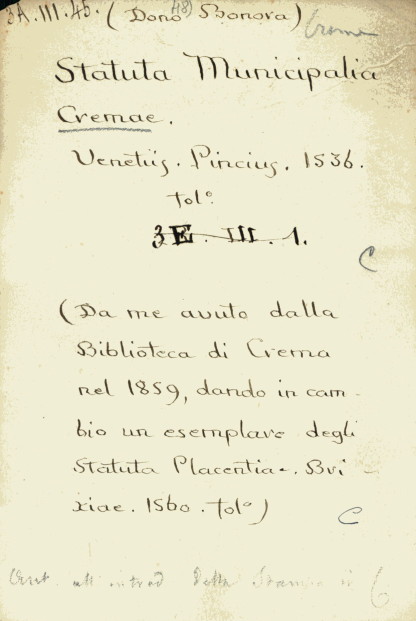 3A.III.45. (Dono Bonora)
(48)
Crema
Statuta Municipalia
Cremae.
Venetiis. Pincius. 1536.
fol°
3E. III. 1.
C
(Da me avuto dalla
Biblioteca di Crema
nel 1859, dando in cam-
bio un esemplare degli
Statuta Placentiae. Bri-
xiae. 1560. fol°)
C
della Stampa
6